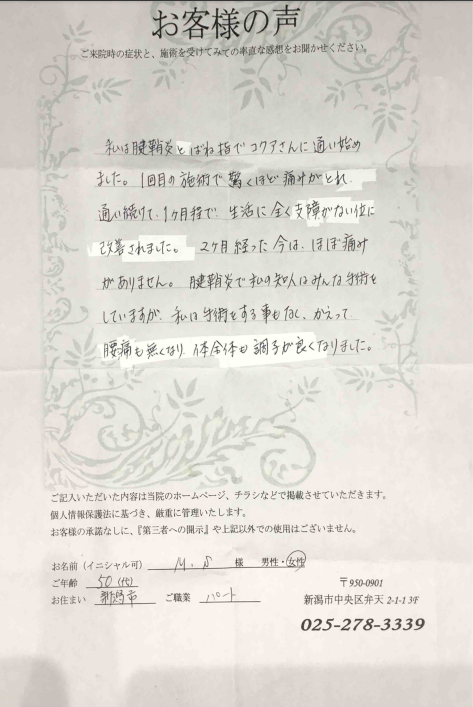 お客様の声
ご来院時の症状と、施術を受けてみての率直な感想をお聞かせください。
私は腱鞘炎とばね指でコクアさんに通い始め
ました。1回目の施術で驚くほど痛みがとれ、
通い続けて、1ヶ月程で、生活に全く支障がない位に
改善されました。 2ヶ月経った今は、ほぼ痛み
がありません。腱鞘炎で私の知人はみんな手術を
していますが、私は手術をする事もなく、かえって
腰痛も無くなり、体全体も調子が良くなりました。
ご記入いただいた内容は当院のホームページ、チラシなどで掲載させていただきます。
個人情報保護法に基づき、厳重に管理いたします。
お客様の承諾なしに、『第三者への開示』や上記以外での使用はございません。
お名前(イニシャル可) M.S 様 男性・女性
ご年齢 50(代)
お住まい 新潟市 ご職業 パート
〒950-0901
新潟市中央区弁天 2-1-1 3F
025-278-3339